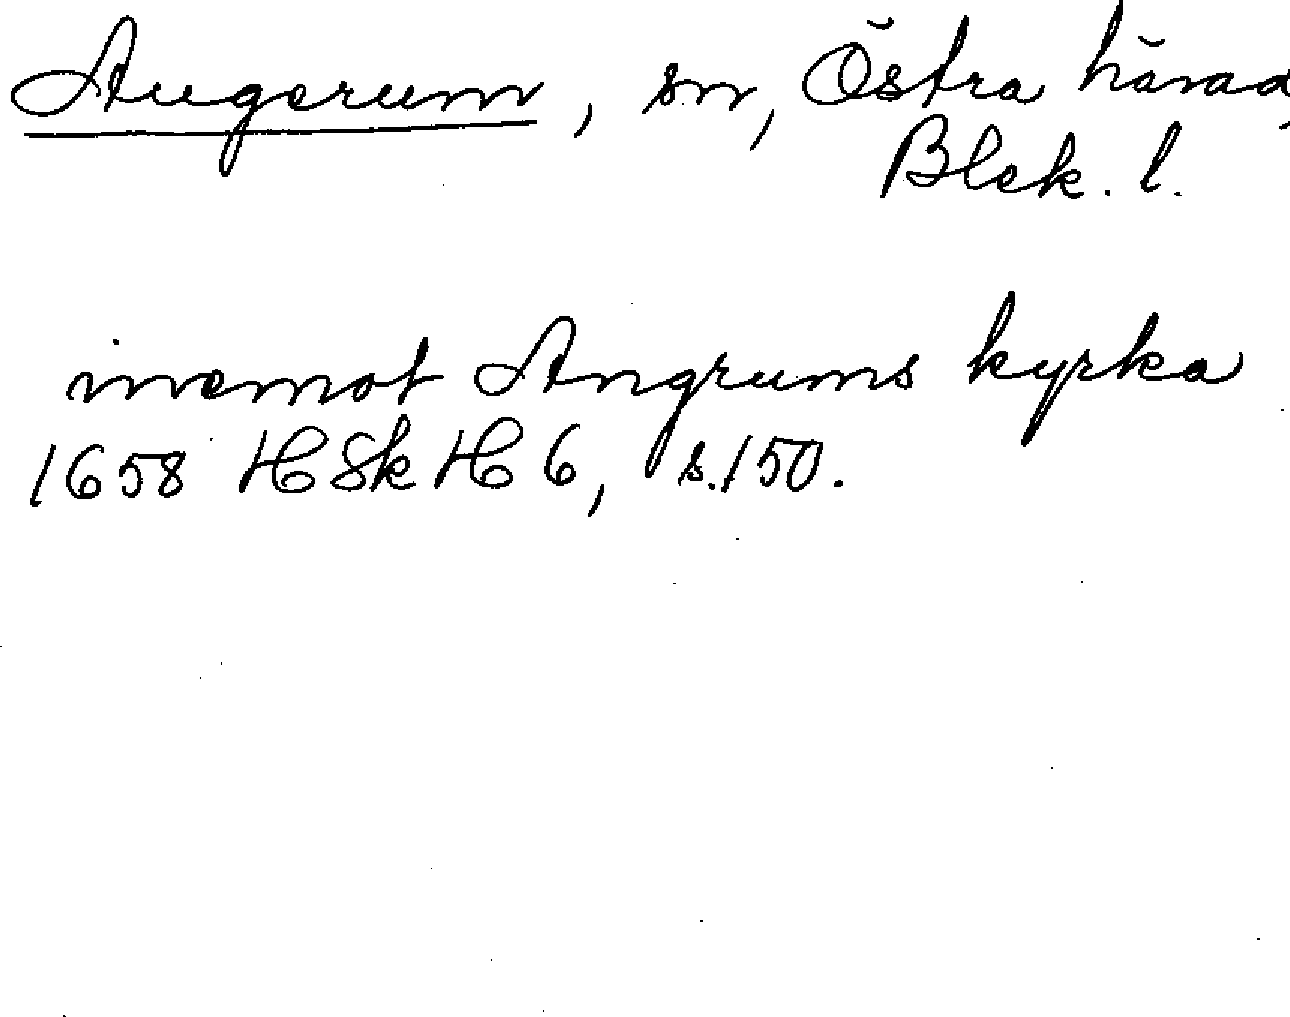 Augerum, sn, Östra härad,
Blek. l.
inemot Angrums kyrka
1658 HSkH 6, s. 150.